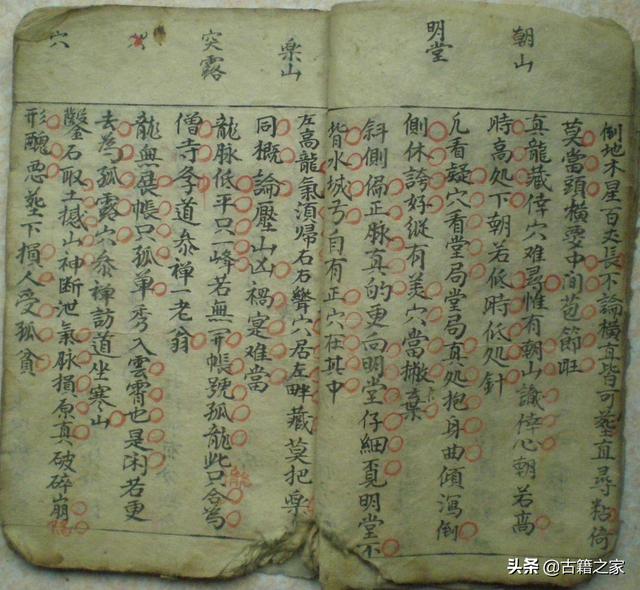 朝山
倒地木星百丈長不論橫直皆可塟直尋粘倚
莫當頭橫要中间苞節旺
真龍藏倖穴难尋惟有朝山識倖心朝若高
時高处下朝若低時低处針
明堂
凢看疑穴看堂局堂局真処抱身曲傾瀉倒
側休誇好縱有美穴當撇棄
斜側偏正脉真的更向明堂仔細覓明堂不
皆水城弓自有正穴在其中
樂山
左高龍氣須帰右右臂穴居左畔藏莫把樂
同概論壓山凶禍寔难當
突露
龍脉低平只一峰若無開帳號孤龍此只合為
僧寺孝道叅禪一老翁
龍無展帳只孤單秀入雲霄也是闲若更
去為孤露穴叅禪訪道坐寒山
穴
鑿石取土撼山神断泄氣脉損原真破碎崩
形醜悪塟下損人受孤貧
头条 @古籍之家